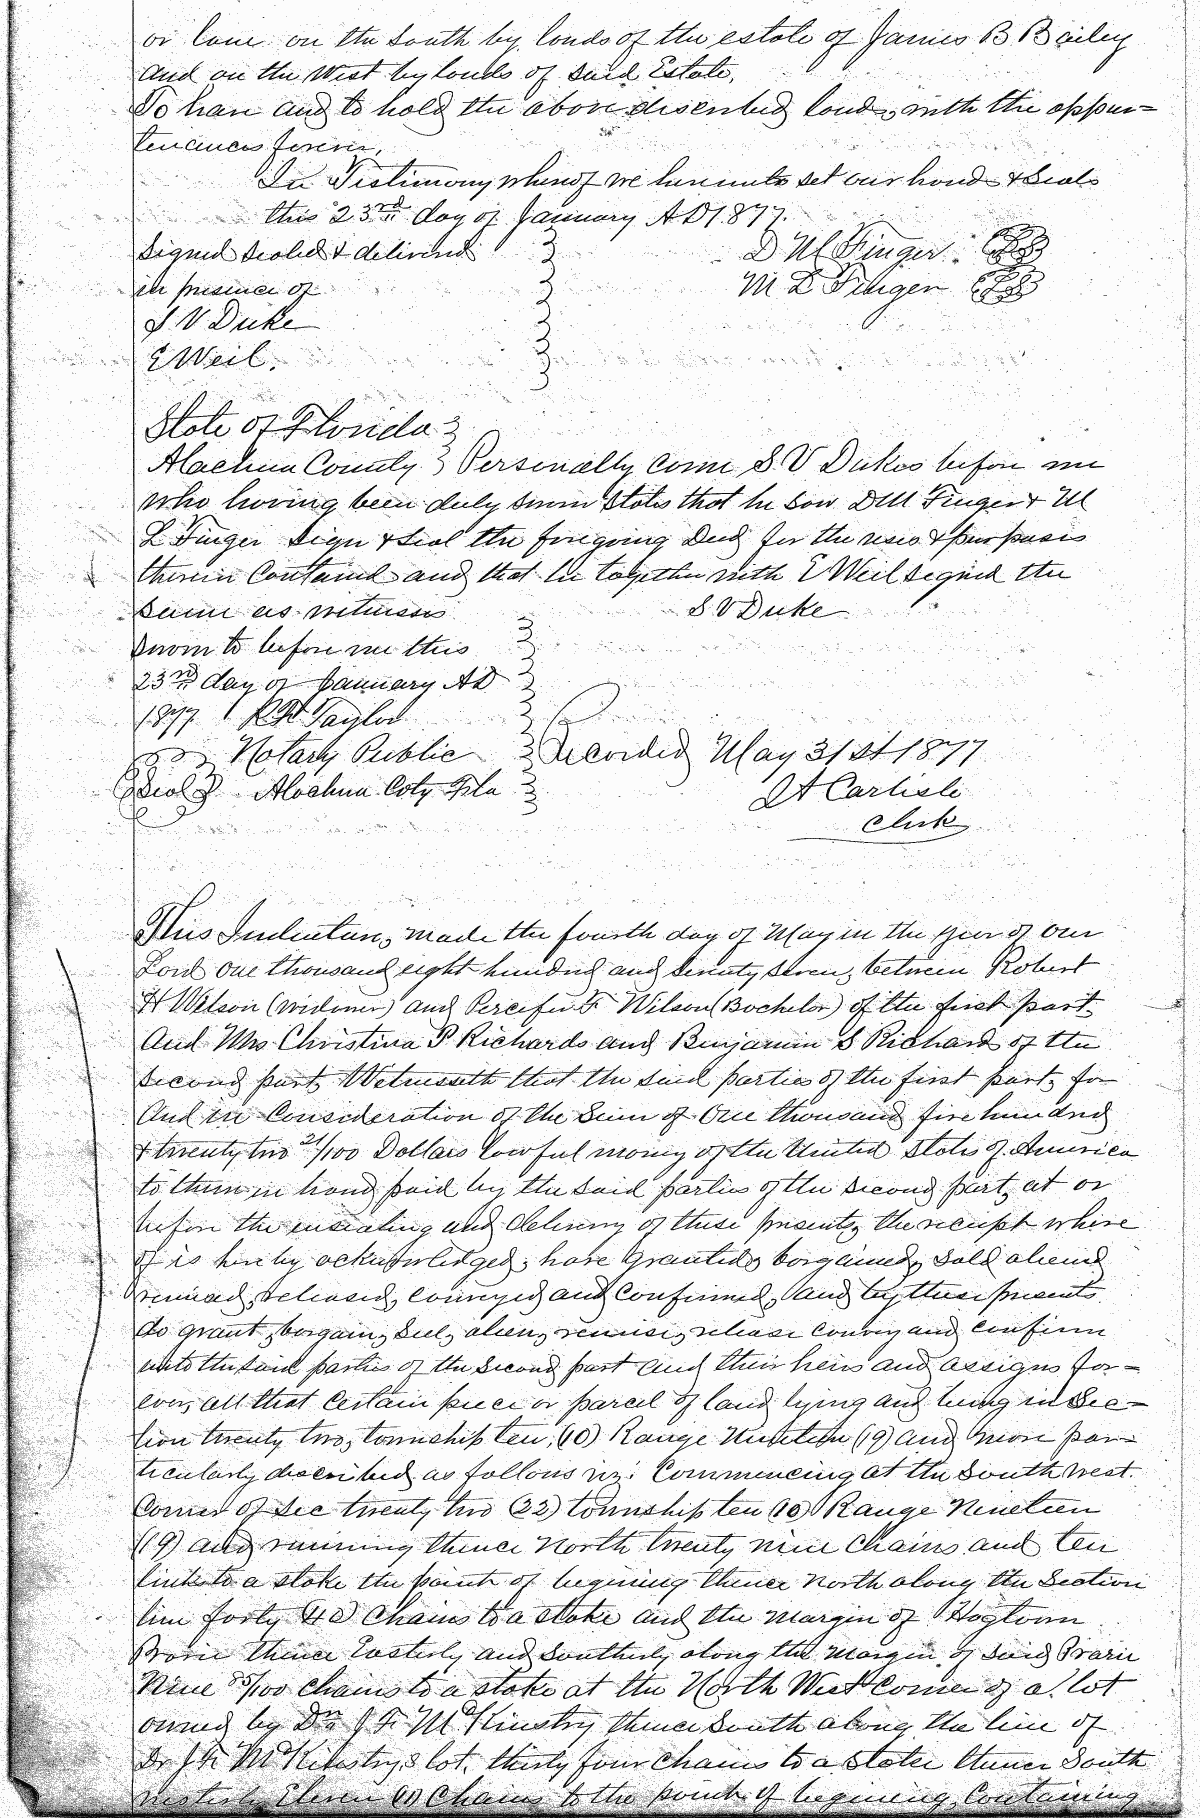 or lane on the South by lands of the estate of James B Bailey
and on the West by lands of said Estate,
To have and to hold the above described lands, with the appur=
tenances forever,
In Testimony whereof we hereunto set our hands & seals
this 23rd day of January AD 1877.
Signed sealed & delivered
D M Finger
in presence of
M L Finger
S V Duke
E Weil.
State of Florida
Alachua County Personally come S. V Dukes before me
who having been duly sworn states that he saw D M Finger & M
L Finger sign & seal the foregoing Deed for the uses & purposes
therein contained and that he together with E Weil signed the
same as witnesses
S V Duke
Sworn to before me this
23rd day of January AD
1877 R H Taylor
Notary Public Recorded May 31st 1877
Seal Alachua Coty Fla J A Carlisle
Clerk
This Indenture, made the fourth day of May in the year of our
Lord one thousand eight hundred and seventy seven, between Robert
H Wilson (widower) and Percifer F Wilson (Bachelor) of the first part
And Mrs Christina P Richards and Benjamin S Richard of the
second part, Witnesseth that the said parties of the first part, for
And in Consideration of the Sum of One thousand five hundred
& twenty two 21/100 Dollars lawful money of the United States of America
to them in hand paid by the said parties of the second part, at or
before the ensealing and delivery of these presents, the receipt where
of is hereby acknowledged, have granted, bargained, sold aliened
remised, released, conveyed and confirmed, and by these presents
do grant, bargain, sell, alien, remise, release convey and confirm
unto the said parties of the second part and their heirs and assigns for=
ever, all that certain piece or parcel of land lying and being in Sec=
tion twenty two, township ten, (10) Range Nineteen (19) and more par=
ticularly described as follows viz: Commencing at the South west
Corner of Sec twenty two (22) township ten (10) Range Nineteen
(19) and running thence North twenty nine chains and ten
links to a stake the point of begining thence North along the Section
line forty (40) chains to a stake and the margin of Hogtown
Prarie thence Easterly and Southerly along the margin of said Prarie
Nine /100 chains to a stake at the North West Corner of a lot
owned by Dr J F McKinstry thence South along the line of
Dr J F McKinstry,s lot, thirty four chains to a stake thence South
westerly Eleven (11) Chains to the point of begining, Containing